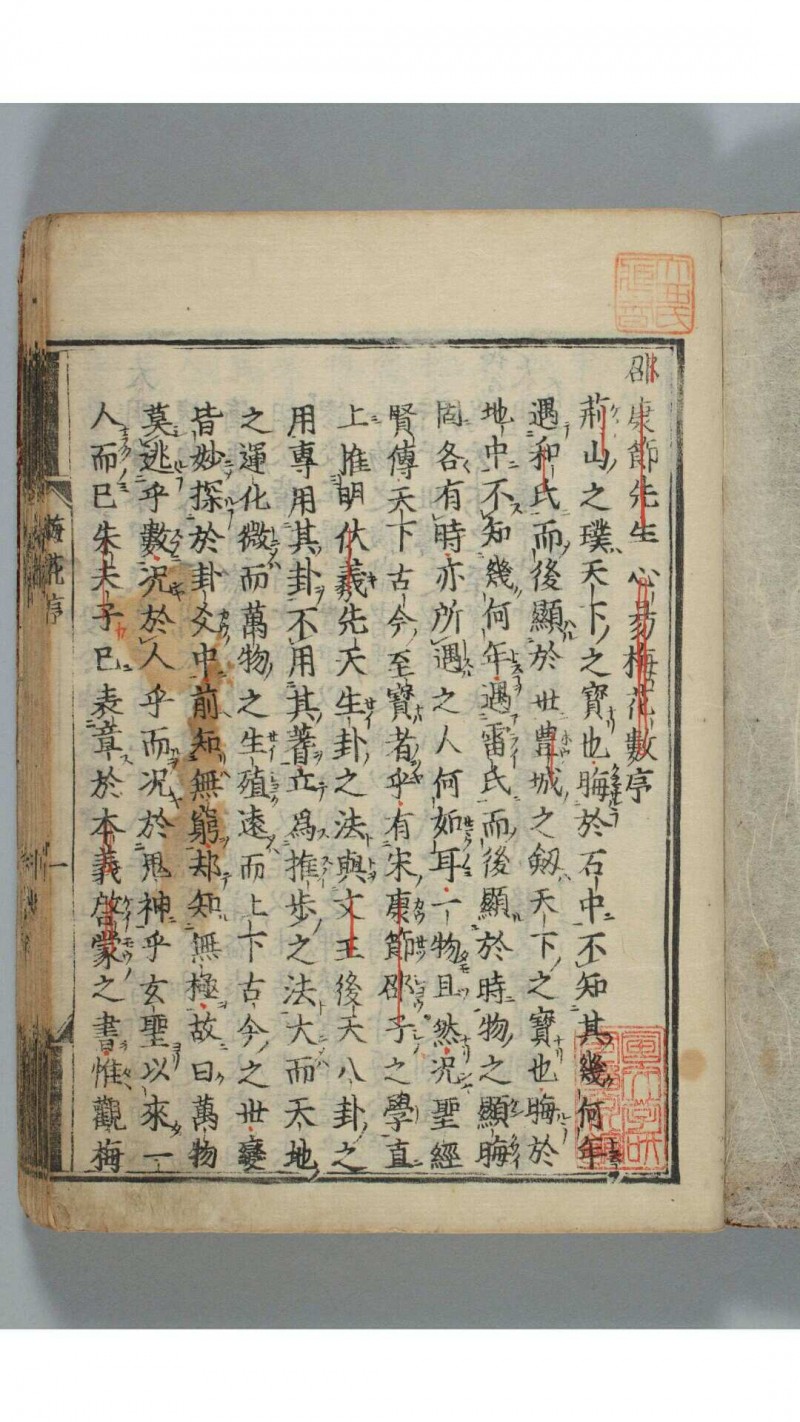 邵康節先生心易梅花數序
荊山之璞天下之寶也晦於石中不知其幾何年
遇和氏而後顯於世豊城之劔天下之寶也晦於
地中不知幾何年遇雷氏而後顯於時物之顯晦
固各有時亦所遇之人何如耳一物且然況聖經
賢傳天下古今至寶者乎有宋康節邵子之學直
上推明伏羲先天生卦之法與文王後天八卦之
用專用其卦不用其蓍立爲推步之法大而天地
之運化微而萬物之生殖遠而上下古今之世變
皆妙探於卦爻中前知無窮却知無極故曰萬物
莫逃乎數況於人乎而況於鬼神乎玄聖以來一
人而已朱夫子已表章於本義啓蒙之書惟觀梅
梅花序
一